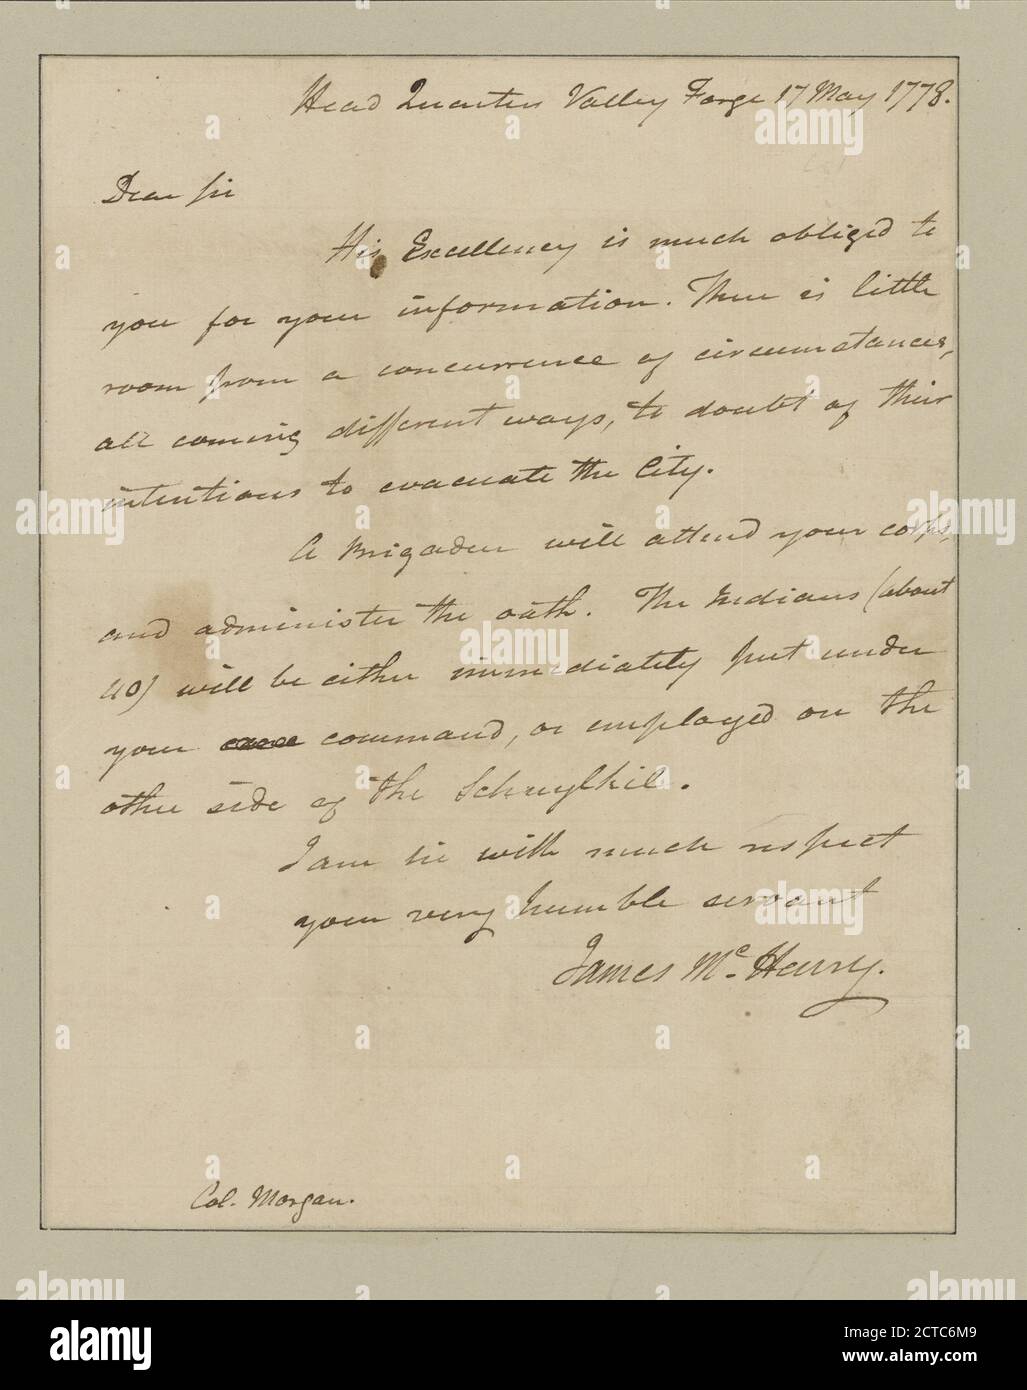 Head Quarters Valley Forge 17 May 1778.
Dear Sir
His Excellency is much obliged to
you for your information. There is little
room from a concurrence of circumstances,
all coming different ways, to doubt of their
intentions to evacuate the City.
A Brigadier will attend your corps,
and administer the oath. The Indians (about
40) will be either immediately put under
your command, or employed on the
other side of the Schuylkil.
I am sir with much respect
your very humble servant
James Mc. Henry.
Col. Morgan.
alamy
Image ID: 2CTC6M9
www.alamy.com